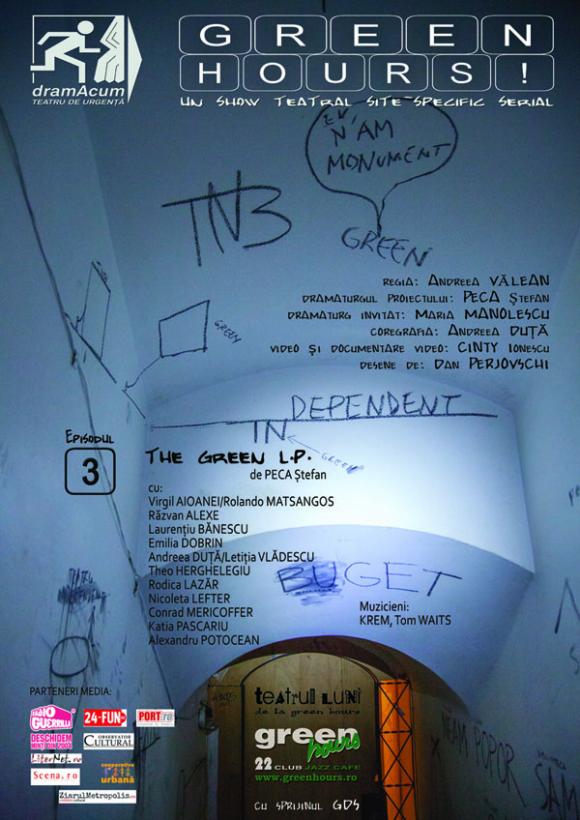 dramAcum
TEATRU DE URGENȚĂ
GREEN
HOURS!
UN SHOW TEATRAL SITE-SPECIFIC SERIAL
N'AM
MONUMENT
TNB
GREEN
GREEN
REGIA: ANDREEA VĂLEAN
DRAMATURGUL PROIECTULUI: PECA ȘTEFAN
DRAMATURG INVITAT: MARIA MANOLESCU
COREGRAFIA: ANDREEA DUȚĂ
VIDEO ȘI DOCUMENTARE VIDEO: CINTY IONESCU
DESENE DE: DAN PERJOVSCHI
DEPENDENT
IN
GREEN
EPISODUL
3
THE GREEN L.P.
de PECA Ștefan
cu:
Virgil AIOANEI/Rolando MATSANGOS
Răzvan ALEXE
Laurențiu BĂNESCU
Emilia DOBRIN
Andreea DUȚĂ/Letiția VLĂDESCU
Theo HERGHELEGIU
Rodica LAZĂR
Nicoleta LEFTER
Conrad MERICOFFER
Katia PASCARIU
Alexandru POTOCEAN
BUGET
Muzicieni:
KREM, Tom WAITS
PARTENERI MEDIA:
RADIO
GUERRILLA
DESCHIDEM
24-FUN
PORT.ro
OBSERVATOR
CULTURAL
LiterNet.ro
Scena.ro
cooperativa
urbană
ZiarulMetropolis
teatrul LUNI
de la green hours
green
hours
22 CLUB JAZZ CAFE
www.greenhours.ro
CU SPRIJINUL GDS
POPOR